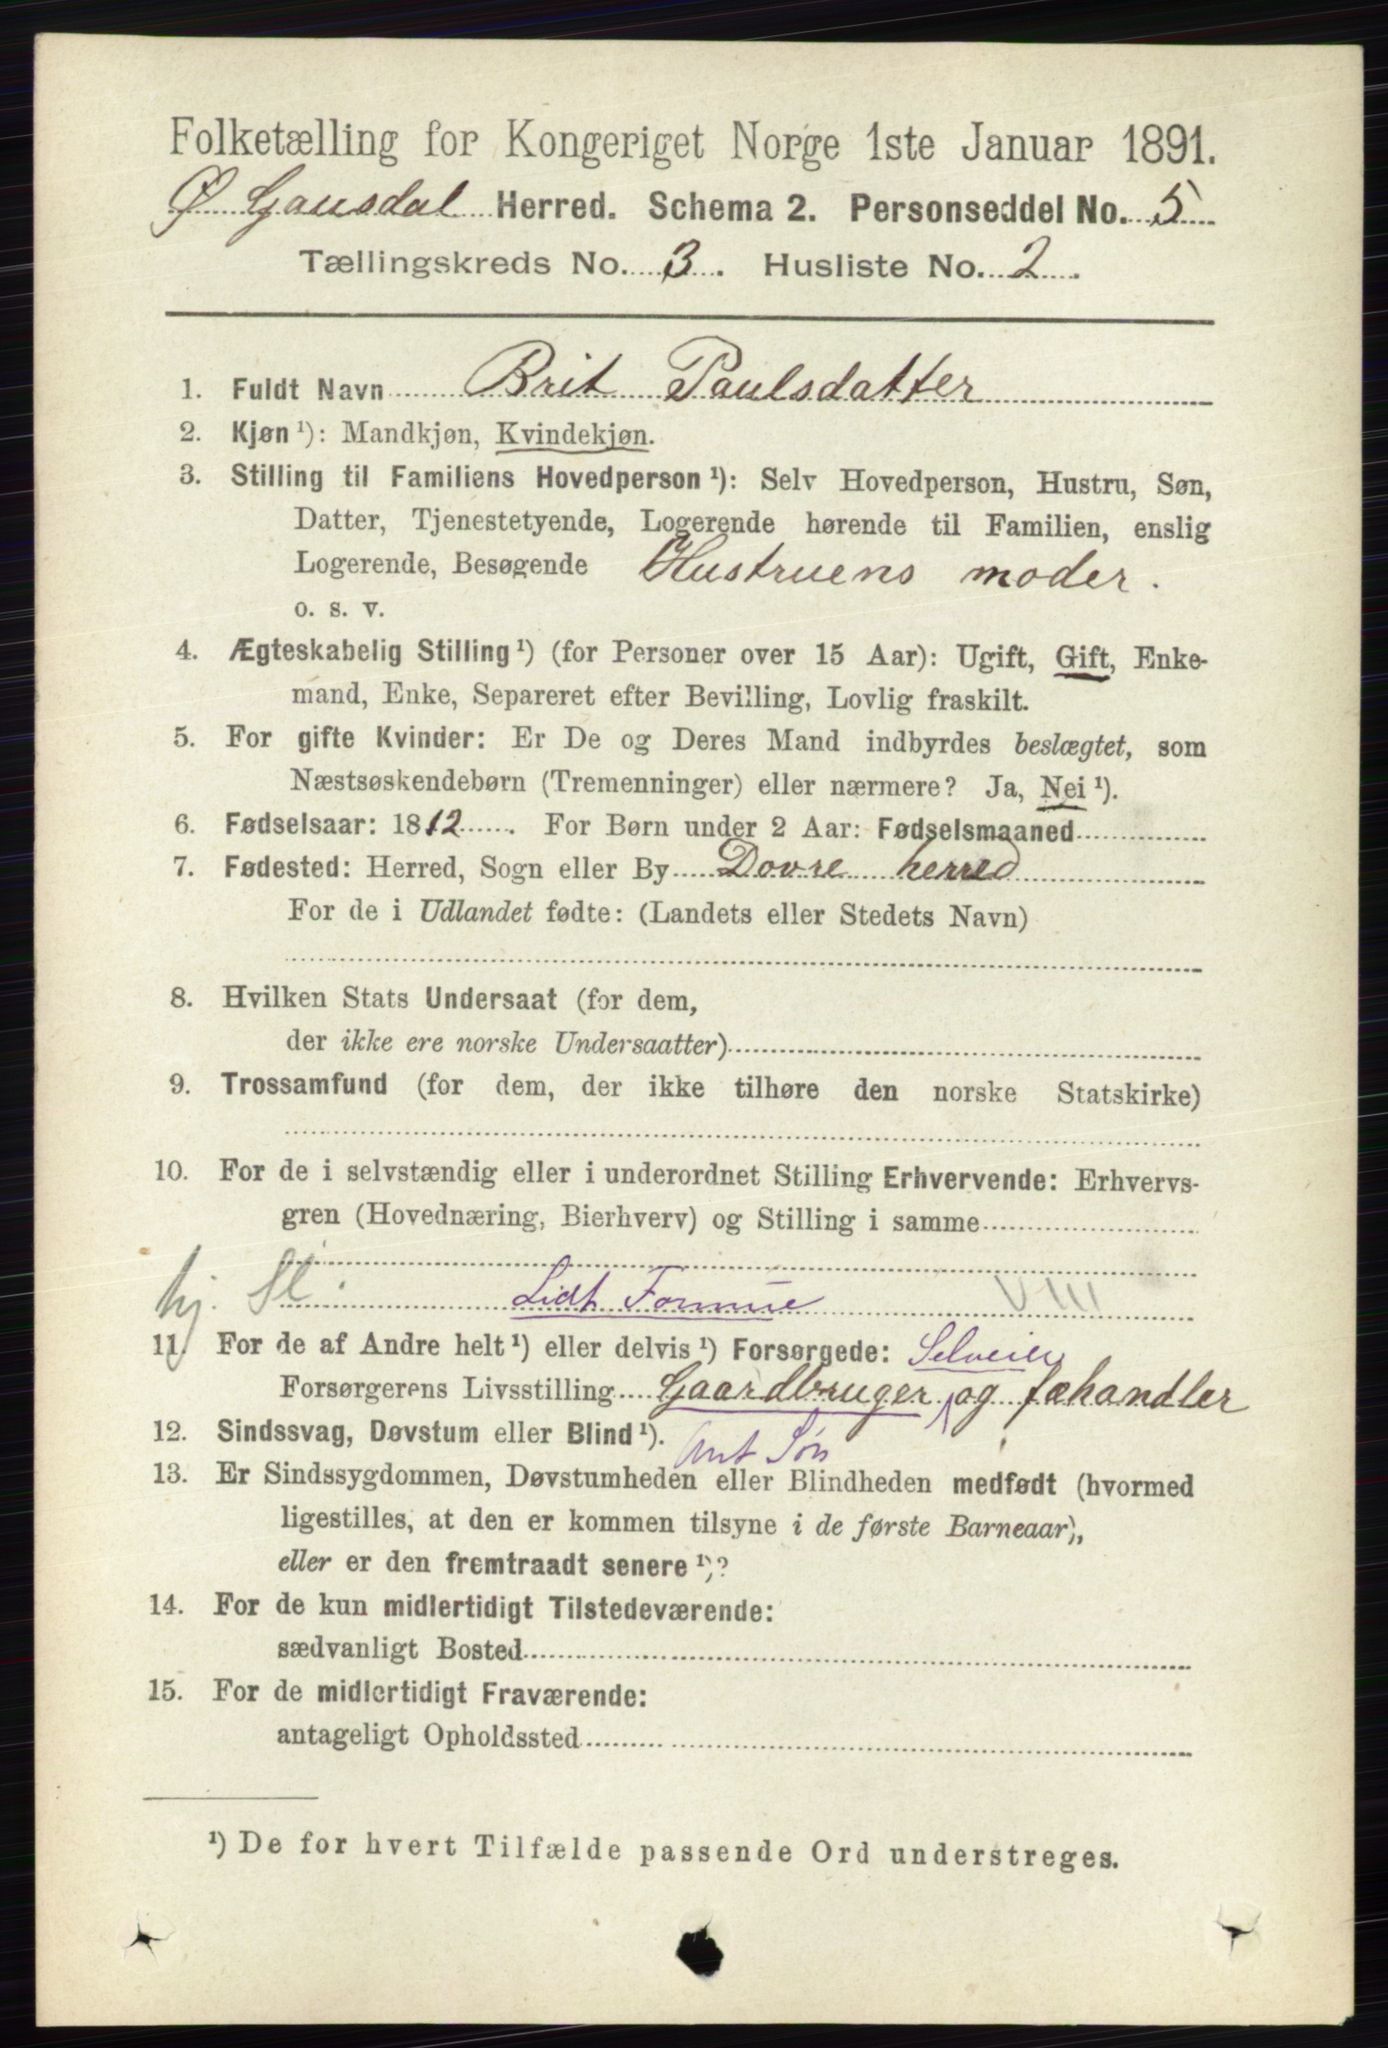 Folketælling for Kongeriget Norge 1ste Januar 1891.
Ø Gausdal Herred. Schema 2. Personseddel No. 5
Tællingskreds No. 3. Husliste No. 2.
1. Fuldt Navn Brit Paulsdatter
2. Kjøn ¹): Mandkjøn, Kvindekjøn.
3. Stilling til Familiens Hovedperson ¹): Selv Hovedperson, Hustru, Søn,
Datter, Tjenestetyende, Logerende hørende til Familien, enslig
Logerende, Besøgende Hustruens moder.
o. s. v.
4. Ægteskabelig Stilling ¹) (for Personer over 15 Aar): Ugift, Gift, Enke-
mand, Enke, Separeret efter Bevilling, Lovlig fraskilt.
5. For gifte Kvinder: Er De og Deres Mand indbyrdes beslægtet, som
Næstsøskendebørn (Tremenninger) eller nærmere? Ja, Nei ¹).
6. Fødselsaar: 1812. For Børn under 2 Aar: Fødselsmaaned
7. Fødested: Herred, Sogn eller By Dovre herred
For de i Udlandet fødte: (Landets eller Stedets Navn)
8. Hvilken Stats Undersaat (for dem,
der ikke ere norske Undersaatter)
9. Trossamfund (for dem, der ikke tilhøre den norske Statskirke)
10. For de i selvstændig eller i underordnet Stilling Erhvervende: Erhvervs-
gren (Hovednæring, Bierhverv) og Stilling i samme
hj. Sl. Lidt Formue VIII
11. For de af Andre helt ¹) eller delvis ¹) Forsørgede: Selveier
Forsørgerens Livsstilling Gaardbruger og fæhandler
12. Sindssvag, Døvstum eller Blind ¹). Søn
13. Er Sindssygdommen, Døvstumheden eller Blindheden medfødt (hvormed
ligestilles, at den er kommen tilsyne i de første Barneaar),
eller er den fremtraadt senere ¹)?
14. For de kun midlertidigt Tilstedeværende:
sædvanligt Bosted
15. For de midlertidigt Fraværende:
antageligt Opholdssted
¹) De for hvert Tilfælde passende Ord understreges.